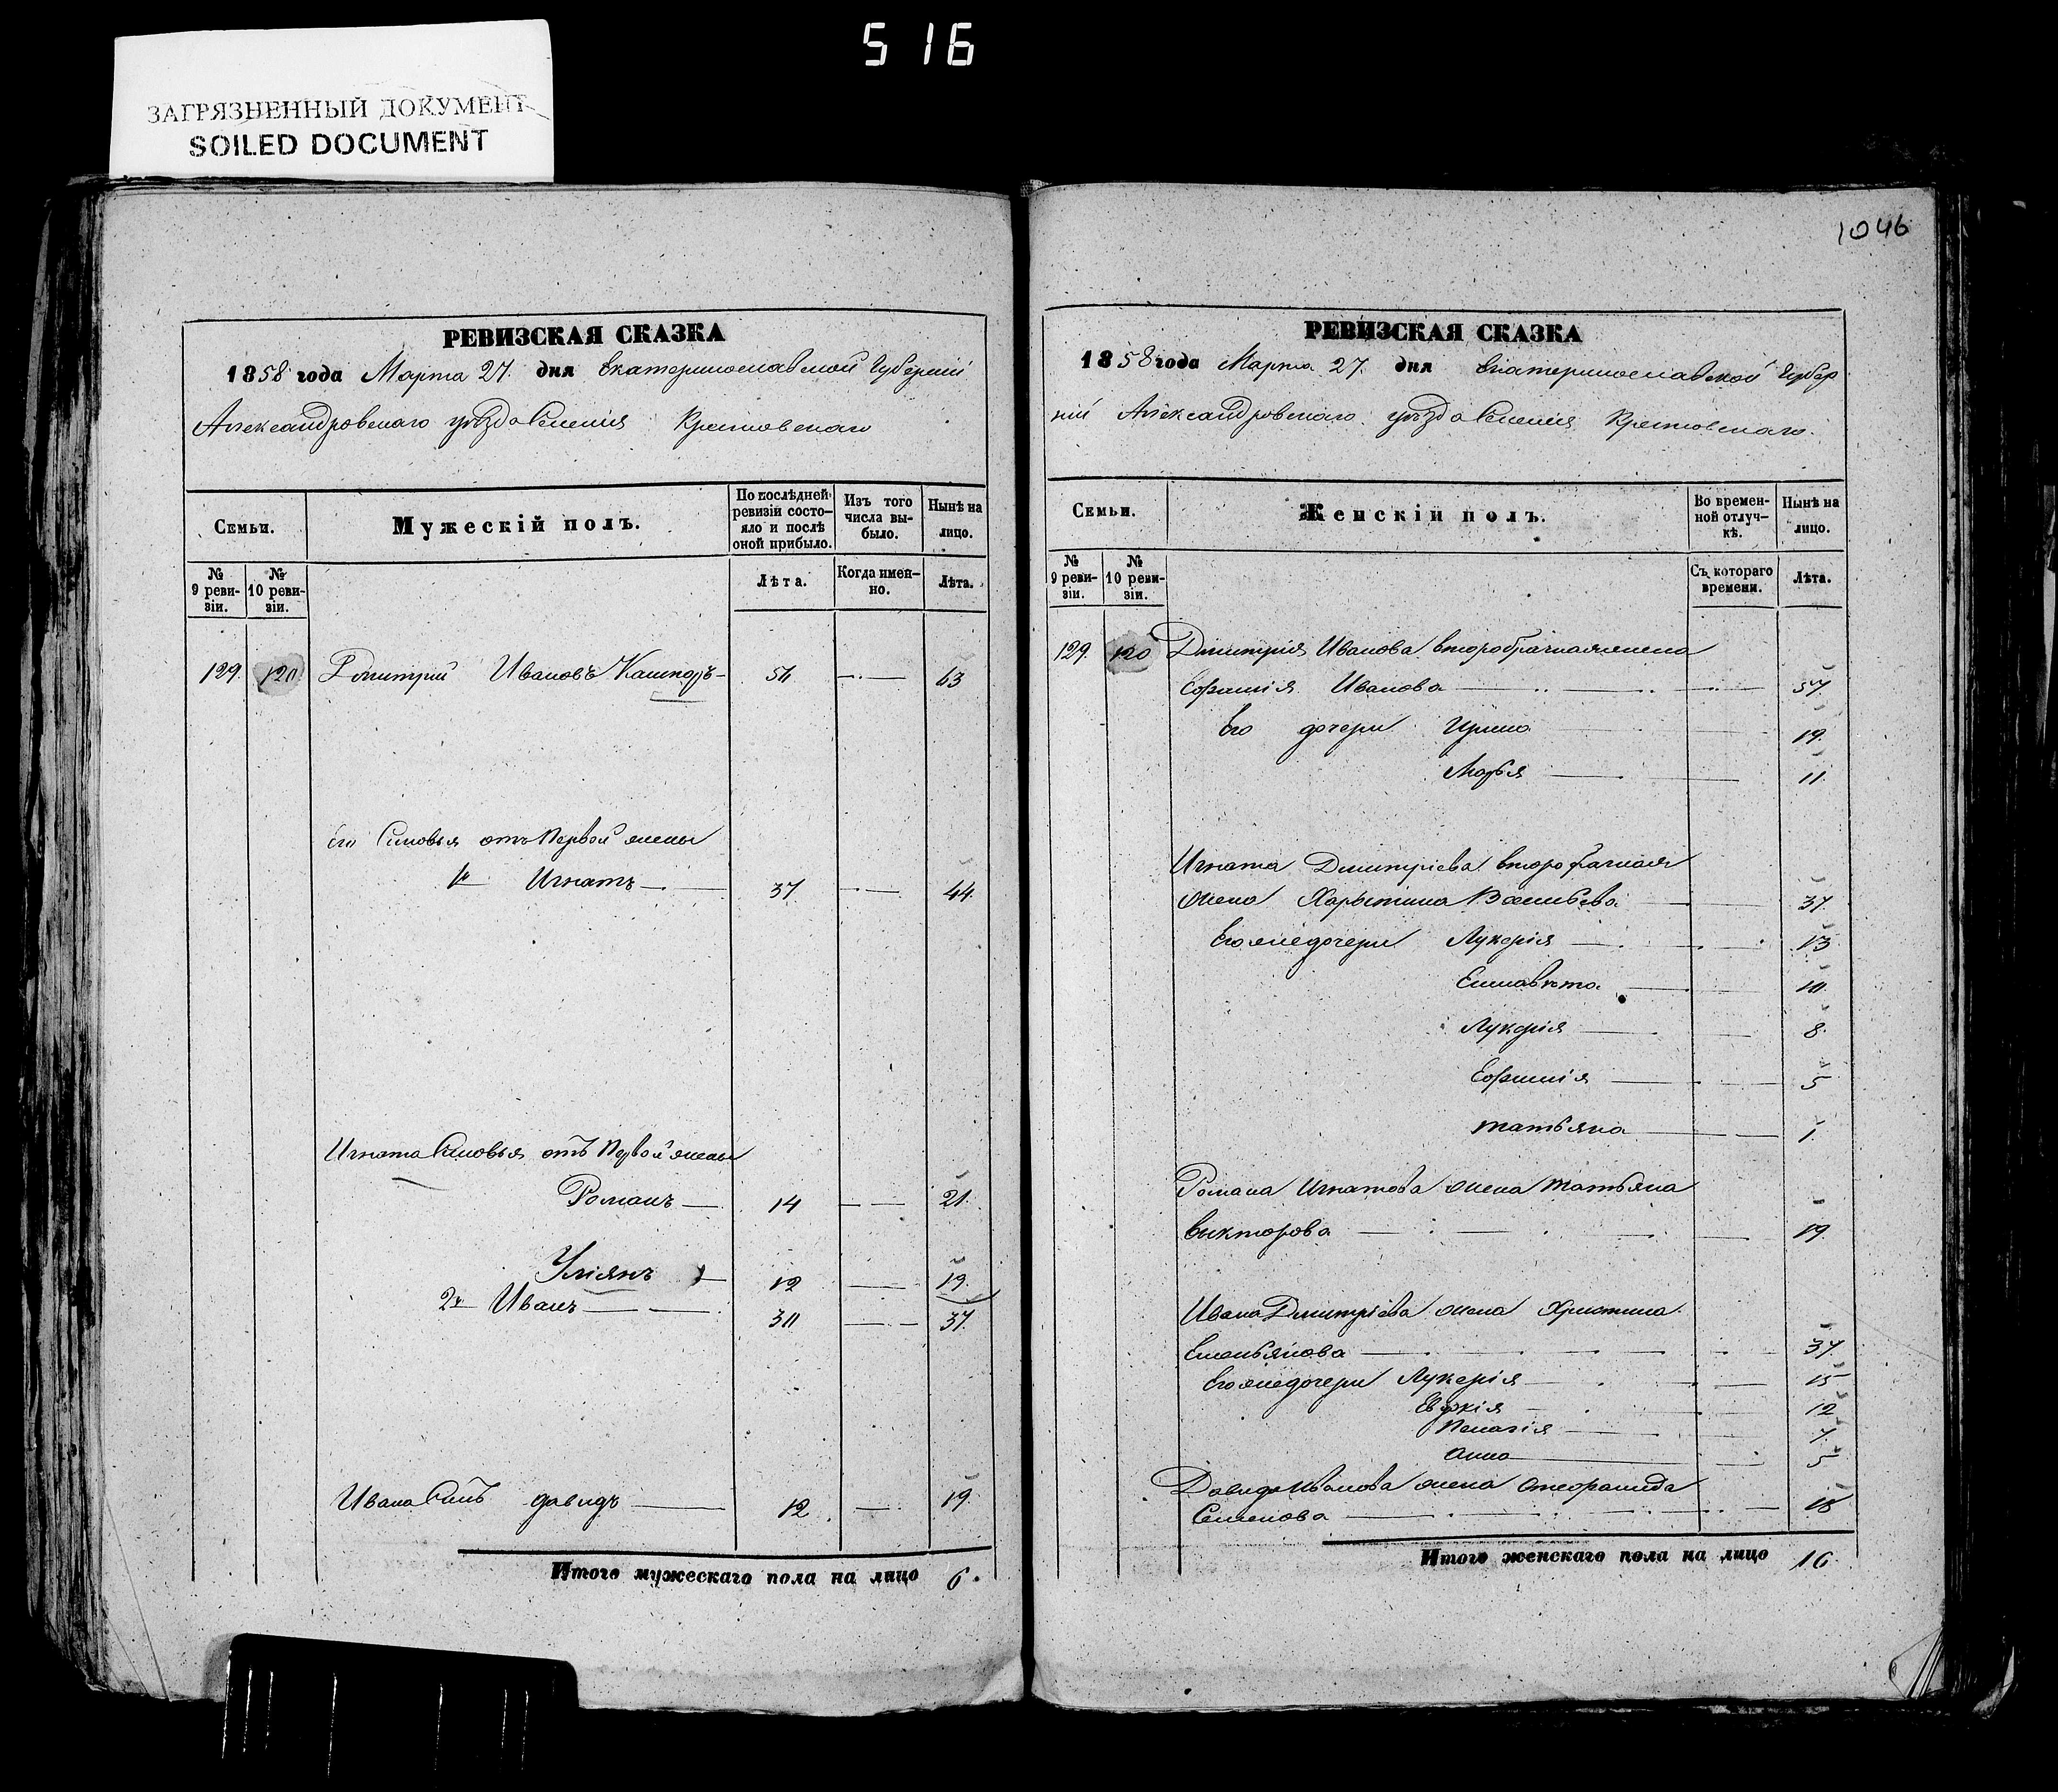 516
ЗАГРЯЗНЕННЫЙ ДОКУМЕНТ
SOILED DOCUMENT
РЕВИЗСКАЯ СКАЗКА
1858 года Марта 27. дня Екатеринославской Губерніи
Александровскаго уѣзда Селенія
Семьи.
Мужескій полъ.
По послѣдней ревизіи состояло и послѣ оной прибыло.
Изъ того числа выбыло.
Нынѣ на лицо.
№ 9 ревизіи.
№ 10 ревизіи.
Лѣта.
Когда именно.
Лѣта.
129. 120 Дмитрій Ивановъ 56 63
его Сыновья отъ Первой жены
1й Игнатъ 37 44.
Игната Сыновья отъ Первой жены
Романъ 14 21.
Уліянъ 12 19.
2й Иванъ 30 37.
Ивана Сынъ давидъ 12 19.
Итого мужескаго пола на лицо 6.
1046
РЕВИЗСКАЯ СКАЗКА
1858 года Марта 27. дня Екатеринославской Губер
ніи Александровскаго уѣзда Селенія
Семьи.
Женскій полъ.
Во временной отлучкѣ.
Нынѣ на лицо.
№ 9 ревизіи.
№ 10 ревизіи.
Съ котораго времени.
Лѣта.
129. 120 Дмитрія Иванова второбрачная жена
Иванова 57.
Его дочери Ирина 19.
Марья 11.
Игната Дмитріева второбрачная
жена Харытина Васильева 37.
Его же дочери Лукерія 13
Елисавѣта 10.
Лукерія 8.
5
татьяна 1.
Романа Игнатова жена татьяна
Викторова 19
Ивана Дмитріева жена Христина
Емельянова 37.
Его же дочери Лукерія 15
12
Пелагія 7.
Анна 5
Давида Иванова жена
Семенова 18
Итого женскаго пола на лицо 16